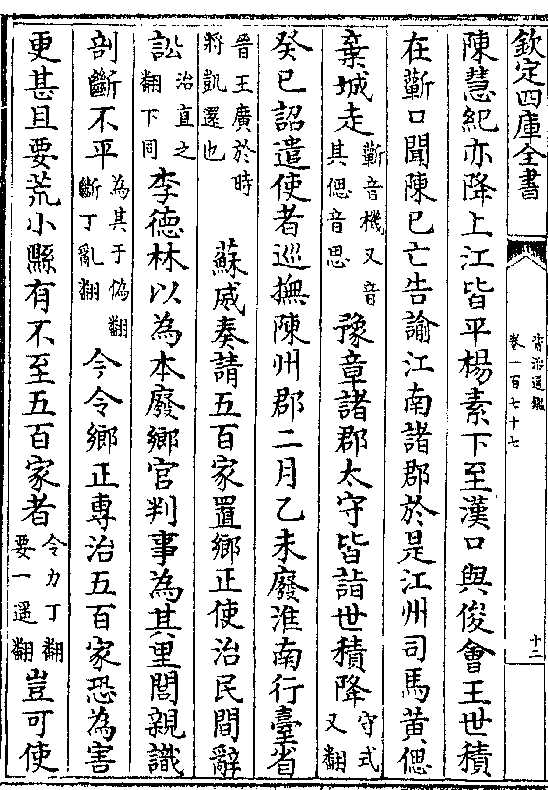 欽定四庫全書
資治通鑑
卷一百七十七
十二
陳慧紀亦降上江皆平楊素下至漢口與俊會王世積
在蘄口聞陳已亡告諭江南諸郡於是江州司馬黃偲
棄城走蘄音機又音其偲音思豫章諸郡太守皆詣世積降守式又翻
癸巳詔遣使者巡撫陳州郡二月乙未廢淮南行臺省
晉王廣於時將凱還也蘇威奏請五百家置鄉正使治民間辭
訟治直之翻下同李德林以為本廢鄉官判事為其里閭親識
剖斷不平為其于偽翻斷丁亂翻今令鄉正專治五百家恐為害
更甚且要荒小縣有不至五百家者令力丁翻要一遥翻豈可使